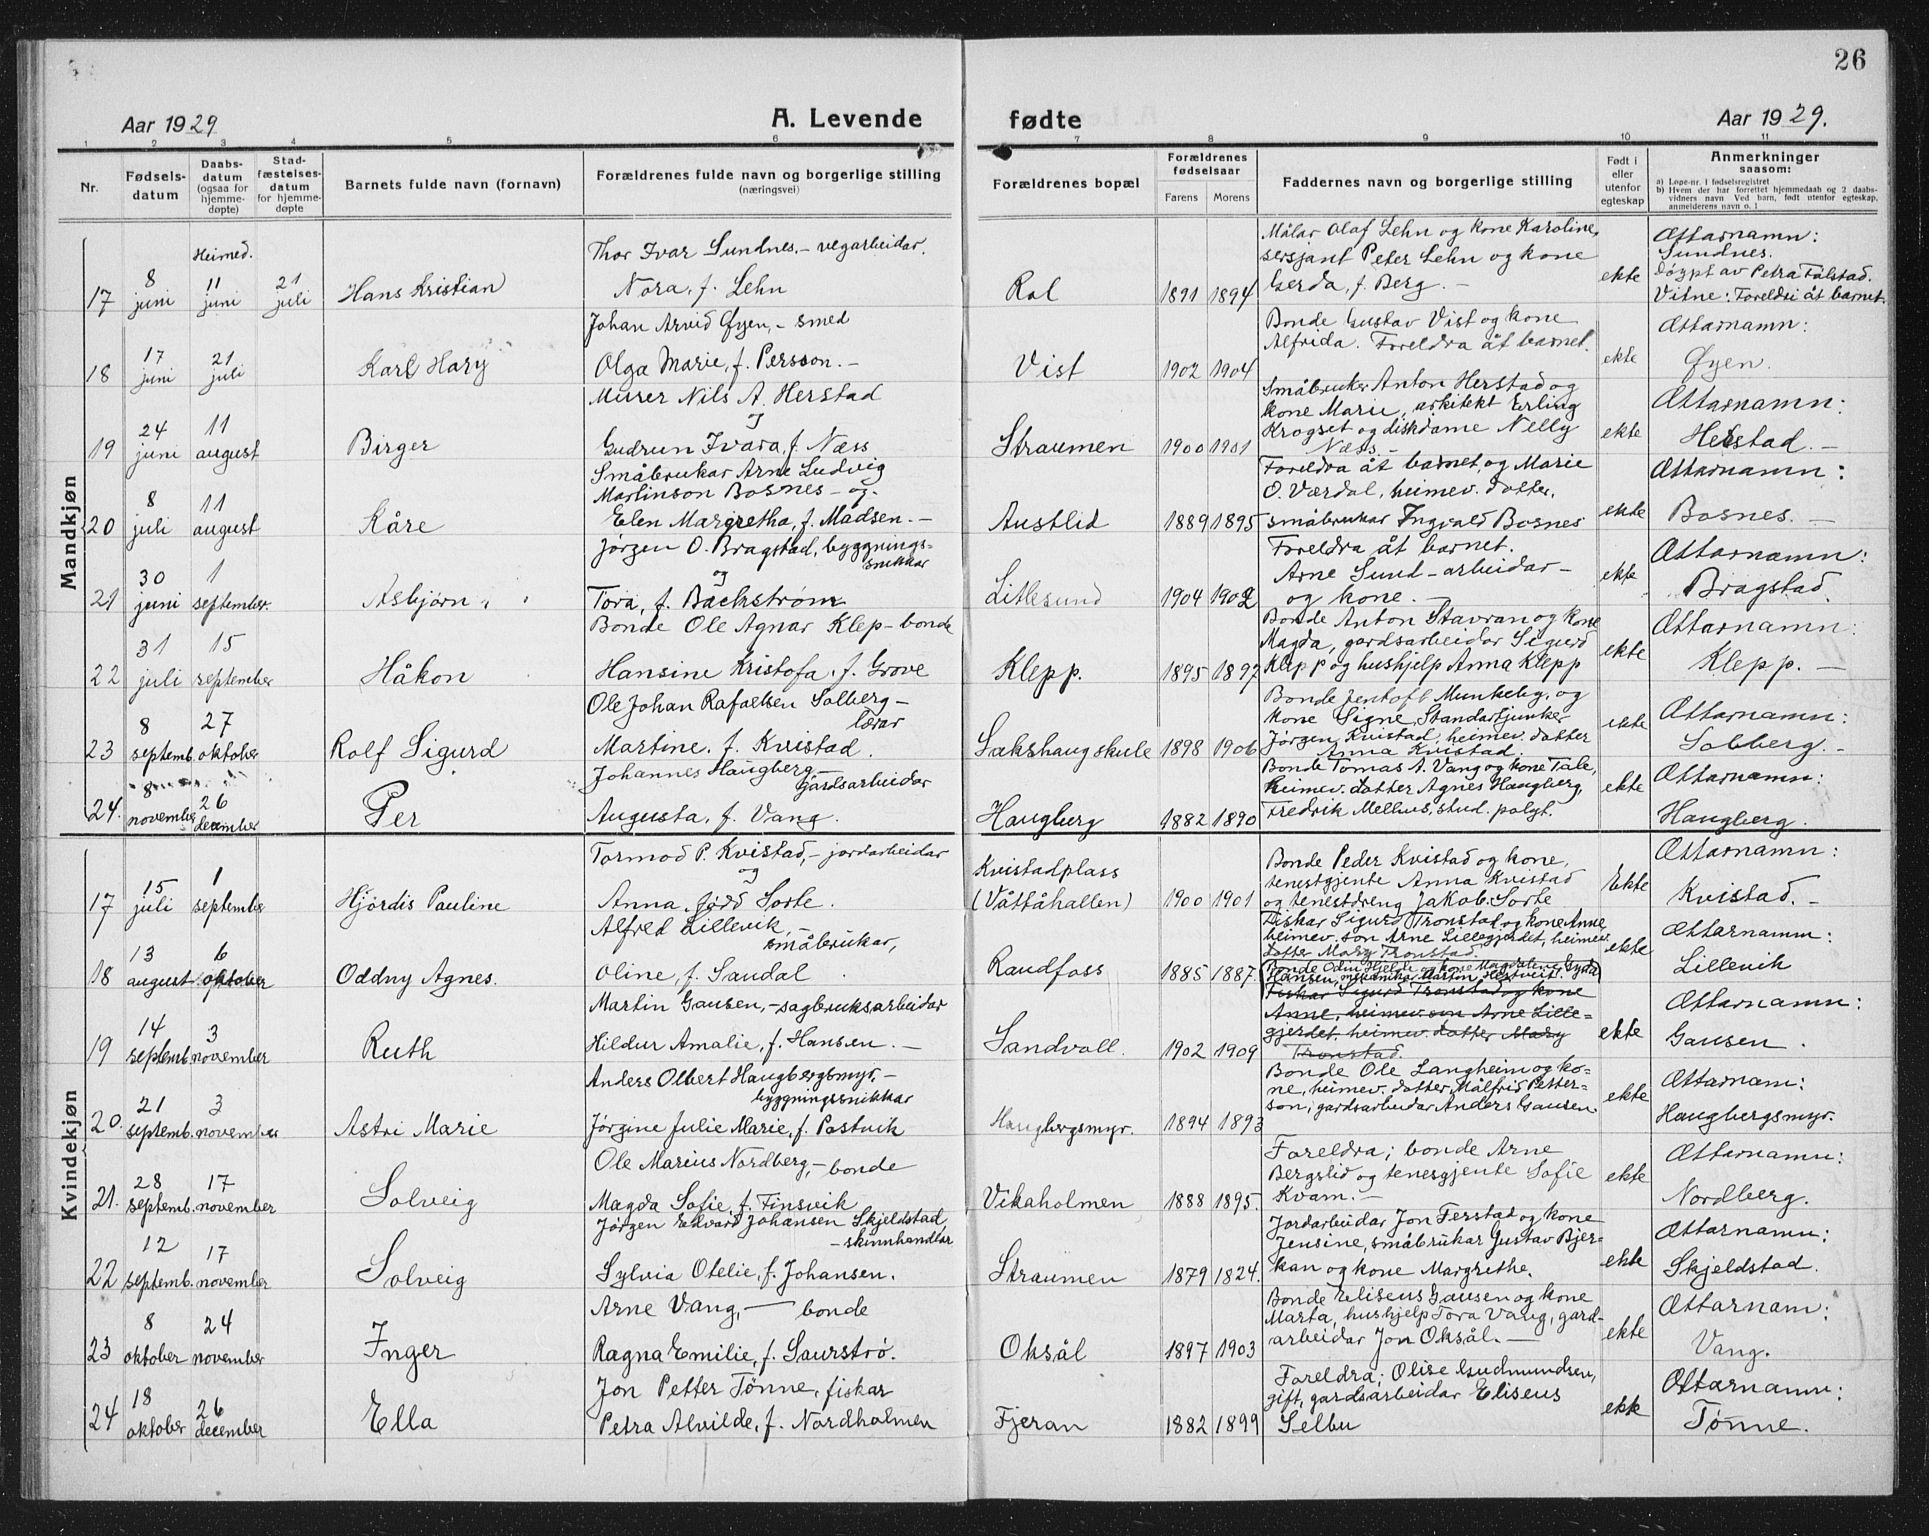 26
Aar 1929
A. Levende
fødte
Aar 1929.
1 2 3 4 5 6 7 8 9 10 11
Nr.
Fødsels-
datum
Daabs-
datum
(ogsaa for
hjemme-
døpte)
Stad-
fæstelses-
datum
for hjemme-
døpte
Barnets fulde navn (fornavn)
Forældrenes fulde navn og borgerlige stilling
(næringsvei)
Forældrenes bopæl
Forældrenes
fødselsaar
Farens Morens
Faddernes navn og borgerlige stilling
Født i
eller
utenfor
egteskap
Anmerkninger
saasom:
a) Løpe-nr. i fødselsregistret
b) Hvem der har forrettet hjemmedaab og 2 daabs-
vidners navn Ved barn, født utenfor egteskap,
anmelderens navn o. l
Mandkjøn
17
8
juni
Heimed.
11
juni
21
juli
Hans Kristian
Thor Ivar Sundnes, - vegarbeidar.
Nora, f. Lehn
Rol
1891 1894
Målar Olaf Lehn og kone Karoline,
sersjant Peter Lehn og kone
Gerda, f. Berg. -
ekte
Ættarnamn:
Sundnes.
Døypt av Petra Fålstad.
Vitne: Foreldri åt barnet.
18
17
juni
21
juli
Karl Hary
Johan Arvid Øyen, - smed
Olga Marie, f. Persson. -
Vist
1902 1904
Bonde Gustav Vist og kone
Alfrida. Foreldra åt barnet.
ekte
Ættarnamn:
Øyen.
19
24
juni
11
august
Birger
Murer Nils A. Herstad
og
Gudrun Ivara, f. Næss
Straumen
1900 1901
Småbruker Anton Herstad og
kone Marie, arkitekt Erling
Krogset og diskdame Nelly
Næss. -
ekte
Ættarnamn:
Herstad. -
20
8
juli
11
august
Kåre
Småbrukar Arne Ludvig
Martinson Bosnes - og -
Elen Margretha, f. Madsen. -
Austlid
1889 1895
Foreldra åt barnet, og Marie
O. Værdal, heimev. dotter,
småbrukar Ingvald Bosnes
ekte
Ættarnamn:
Bosnes. -
21
30
juni
1
september.
Asbjørn
Jørgen O. Bragstad, byggnings-
snikkar
og
Tora, f. Backstrøm
Litlesund
1904 1902
Foreldra åt barnet.
Arne Sund - arbeidar -
og kone. -
ekte
Ættarnamn:
Bragstad.
22
31
juli
15
september
Håkon
Bonde Ole Agnar Klep - bonde
Hansine Kristofa, f. Grove
Klepp.
1895 1897
Bonde Anton Stavran og kone
Magda, gardsarbeidar Sigurd
Klepp og hushjelp Anna Klepp
ekte
Ættarnamn:
Klepp. -
23
8
septemb.
27
oktober
Rolf Sigurd
Ole Johan Rafaelsen Solberg -
lærar
Martine, f. Kvistad.
Sakshaug skule
1898 1906
Bonde Jentoft Munkeby, og
kone Signe, Standartjunker
Jørgen Kvistad, heimev. dotter
Anna Kvistad.
ekte
Ættarnamn:
Solberg. -
24.
8
november
26
december
Per
Johannes Haugberg -
gardsarbeidar
Augusta, f. Vang.
Haugberg
1882 1890
Bonde Tomas A. Vang og kone Tale,
heimev. dotter Agnes Haugberg,
Fredrik Melhus, stud. polyt.
ekte
Ættarnamn:
Haugberg.
Kvindekjøn
17
15
juli
1
september
Hjørdis Pauline
Tormod P. Kvistad, - jordarbeidar
og
Anna, fødd Sorte.
Kvistadplass
(Våttåhallen)
1900 1901
Bonde Peder Kvistad og kone,
tenestgjente Anna Kvistad
og tenestdreng Jakob Sorte
Ekte
Ættarnamn:
Kvistad. -
18
13
august
6
oktober
Oddny Agnes.
Alfred Lillevik, -
småbrukar,
Oline, f. Saudal.
Raudfoss
1885 1887.
Fiskar Sigurd Tronstad og kone Anne,
heimev. son Arne Lillegjerdet, heimev.
dotter Mary Tronstad.
ekte
Ættarnamn:
Lillevik
19
14
septemb.
3
november
Ruth
Martin Gausen, - sagbruksarbeidar
Hildur Amalie, f. Hansen. -
Sandvoll.
1902 1909
Bonde Odin Hjelde og kone Magdalene, Gyda
Hansen, mekanikar Marton Hestveit.
Fiskar Sigurd Tronstad og kone
Anne, heimev. son Arne Lille-
gjerdet, heimev. dotter Mary
Tronstad.
ekte
Ættarnamn:
Gausen.
20.
21
septemb.
3
november
Astri Marie
Anders Olbert Haugbergsmyr, -
byggningssnikkar
Jørgine Julie Marie, f. Postvik
Haugbergsmyr.
1894 1893
Bonde Ole Langheim og ko-
ne, heimev. dotter Målfrid Petter-
son, gardsarbeidar Anders Gausen.
ekte
Ættarnam:
Haugbergsmyr.
21.
28
septemb.
17
november
Solveig
Ole Marius Nordberg, - bonde
Magda Sofie, f. Finsvik
Vikaholmen
1888 1895.
Foreldra; bonde Arne
Bergslid og tenesgjente Sofie
Kvam. -
ekte
Ættarnamn:
Nordberg.
22
12
septemb.
17
november
Solveig
Jørgen Edvard Johansen Skjeldstad,
- skinnhandlar
Sylvia Otelie, f. Johansen.
Straumen
1879 1824.
Jordarbeidar Jon Ferstad og kone
Jensine, småbrukar Gustav Bjer-
kan og kone Margrethe.
ekte
Ættarnamn:
Skjeldstad.
23
8
oktober
24
november
Inger
Arne Vang, - bonde
Ragna Emilie, f. Saurstrø.
Oksål
1897 1903
Bonde Eliseus Gausen og kone
Marta, hushjelp Tora Vang, gard-
arbeidar Jon Oksål. -
ekte
Ættarnam:
Vang.
24
18
oktober
26
december
Ella
Jon Petter Tønne, fiskar
Petra Alvilde, f. Nordholmen
Fjeran
1882 1899
Foreldra; Olise Gudmundsen,
gift, gardsarbeidar Eliseus
Selbu
ekte
Ættarnamn:
Tønne.